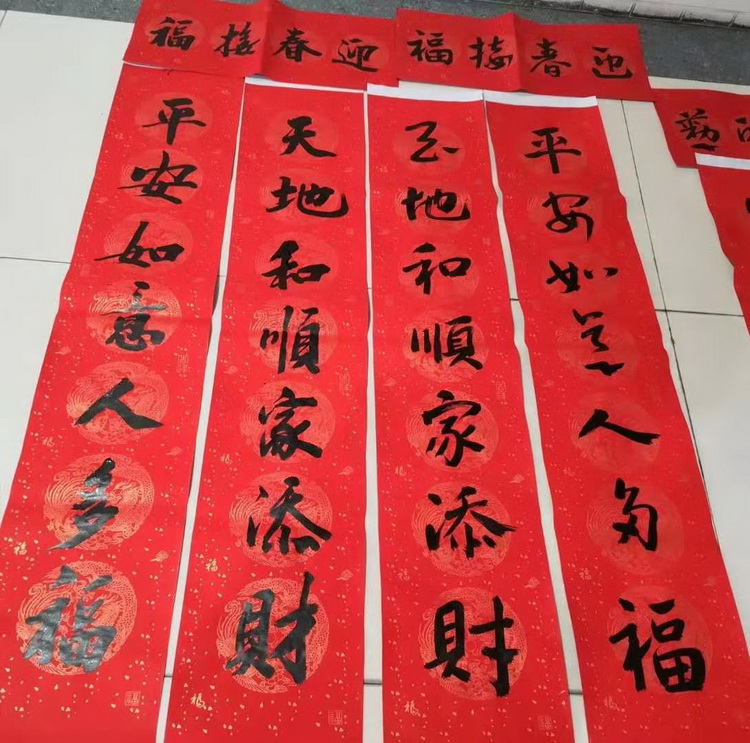 迎春接福
迎春接福
平安如意人多福
天地和順家添財
天地和順家添財
平安如意人多福